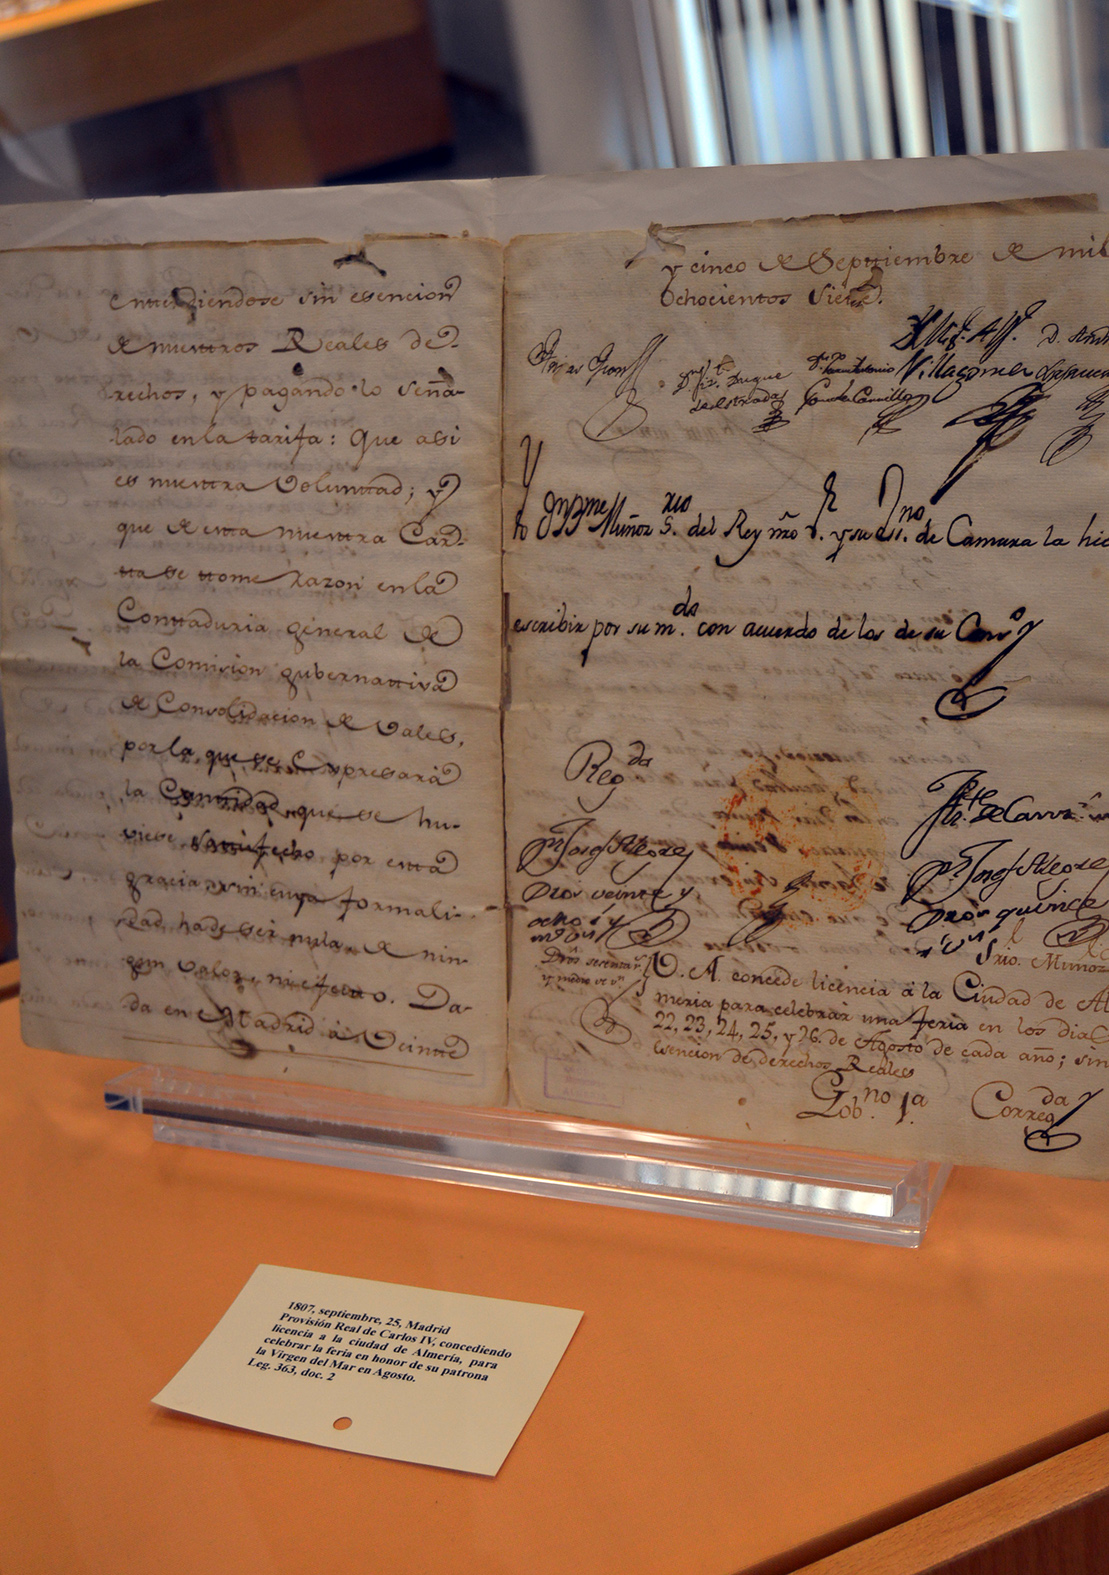 entendiendose sin esencion
de nuestros Reales de-
rechos, y pagando lo seña-
lado en la tarifa: Que asi
es nuestra Voluntad; y
que de esta nuestra Car-
ta se tome razon en la
Contaduria general de
la Comision gubernativa
de Consolidacion de Vales,
por la que se Expresará
la Cantidad que se hu-
viese satisfecho por esta
gracia sin cuya formali-
dad ha de ser nula, de nin-
gun valor, ni efecto. Da-
da en Madrid á Veinte
y cinco de Septtiembre de mil
Ochocientos Siete.
Villagomez
Muñoz S.rio del Rey nro S.r y su Es.no de Camara la hic
escribir por su m.do con acuerdo de los de su Cons.o
Reg.da
D.n Josef Alegre
Dros veinte y
ocho s y
m.o v.n
D.n Josef Alegre
Dros quince
S.rio Muñoz
V. A. concede licencia á la Ciudad de Al
meria para celebrar una feria en los dias
22, 23, 24, 25, y 26. de Agosto de cada año; sin
esencion de derechos Reales
Gob.no 1.a Correg.da
1807, septiembre, 25, Madrid
Provisión Real de Carlos IV, concediendo
licencia a la ciudad de Almería, para
celebrar la feria en honor de su patrona
la Virgen del Mar en Agosto.
Leg. 363, doc. 2